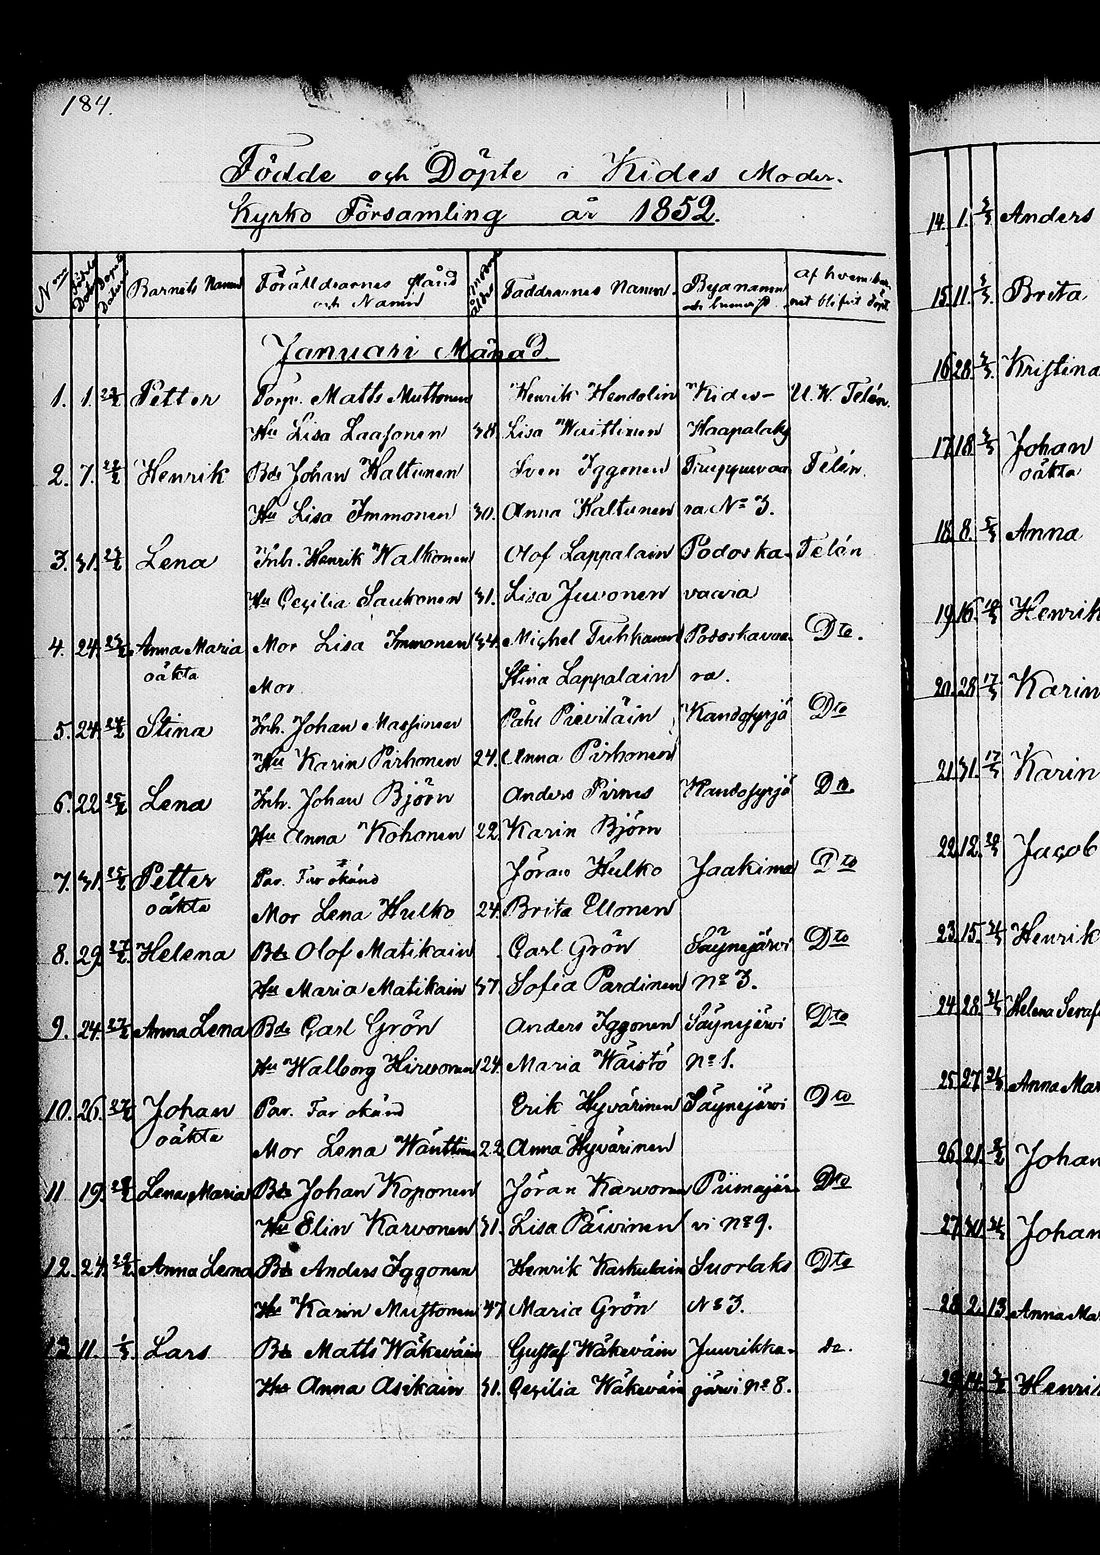 184.
Födde och Döpte i Kides Moder-
Kyrko Församling år 1852.
Barnets Namn Föräldrarnes Stånd och Namn Moders ålder Faddrarnes Namn. Byanamn och numer Af hvem barnet blifvit döpt
Januari Månad.
1. 1. Petter Torp. Matts Muttonen Henrik Hendolin Kides- U. W. Telén.
Hu Lisa Laasonen 38. Lisa Waittinen Haapalaks
2. 7. Henrik Bde Johan Haltunen Sven Iggonen Telén.
Hu Lisa Immonen 30. Anna Haltunen ra No 3.
3. 31. Lena Inh. Henrik Walkonen Olof Lappalain Podoska- Telén
Hu Cecilia Saukonen 31. Lisa Juvonen vaara
4. 24. Anna Maria Mor Lisa Immonen 34. Michel Tuhkanen Podoskavaa- Dto.
oäkta Mor Stina Lappalain ra.
5. 24. Stina Inh. Johan Massinen Påhl Pieviläin Kandosyrjä Dto
Hu Karin Pirhonen 24. Anna Pirhonen
6. 22. Lena Inh. Johan Björn Anders Pirnes Kandosyrjä Dto.
Hu Anna Kohonen 22. Karin Björn
7. 31. Petter Par. Far okänd Jöran Hulko Jaakima Dto
oäkta Mor Lena Hulko 24. Brita Ellonen
8. 29. Helena Bde Olof Matikain Carl Grön Säynejärvi Dto
Hu Maria Matikain 37. Sofia Pardinen no 3.
9. 24. Anna Lena Bde Carl Grön Anders Iggonen Säynejärvi Dto
Hu Walborg Hirvonen 24. Maria Wäistö no 1.
10. 26. Johan Par. Far okänd Erik Hyvärinen Säynejärvi Dto
oäkta Mor Lena Wänttinen 22 Anna Hyvärinen
11 19. Lena Maria Bde Johan Koponen Jöran Karvonen Piimäjär- Dto
Hu Elin Karvonen 31. Lisa Päivinen vi no 9.
12. 24. Anna Lena Bde Anders Iggonen Henrik Karhulain Suorlaks Dto
Hu Karin Mustonen 47. Maria Grön No 3.
13 11. Lars Bde Matts Wäkeväin Gustaf Wäkeväin Juurikka- do.
Hu Anna Asikain 31. Cecilia Wäkeväin järvi no 8.
14. 1. Anders
15. 11. Brita
16 28. Kristina
17. 18. Johan
oäkta
18. 8. Anna
19. 16. Henrik
20. 28. Karin
21. 31. Karin
22. 12. Jacob
23. 15. Henrik
24. 28. Helena Seraf
25. 27. Anna Mar
26. 21. Johan
27. 30. Johan
28. 2. 13 Anna Ma
29. 14. Henrik